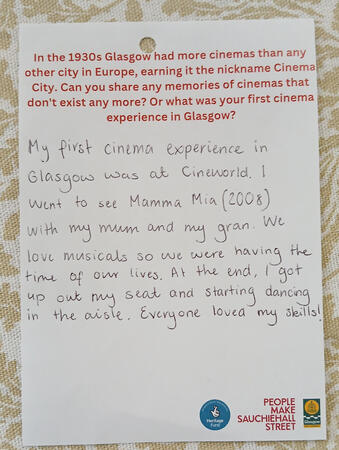 In the 1930s Glasgow had more cinemas than any
other city in Europe, earning it the nickname Cinema
City. Can you share any memories of cinemas that
don't exist any more? Or what was your first cinema
experience in Glasgow?
My first cinema experience in
Glasgow was at Cineworld. I
went to see Mamma Mia (2008)
with my mum and my gran. We
love musicals so we were having the
time of our lives. At the end, I got
up out my seat and starting dancing
in the aisle. Everyone loved my skills!
Heritage
Fund
PEOPLE
MAKE
SAUCHIEHALL
STREET
Glasgow